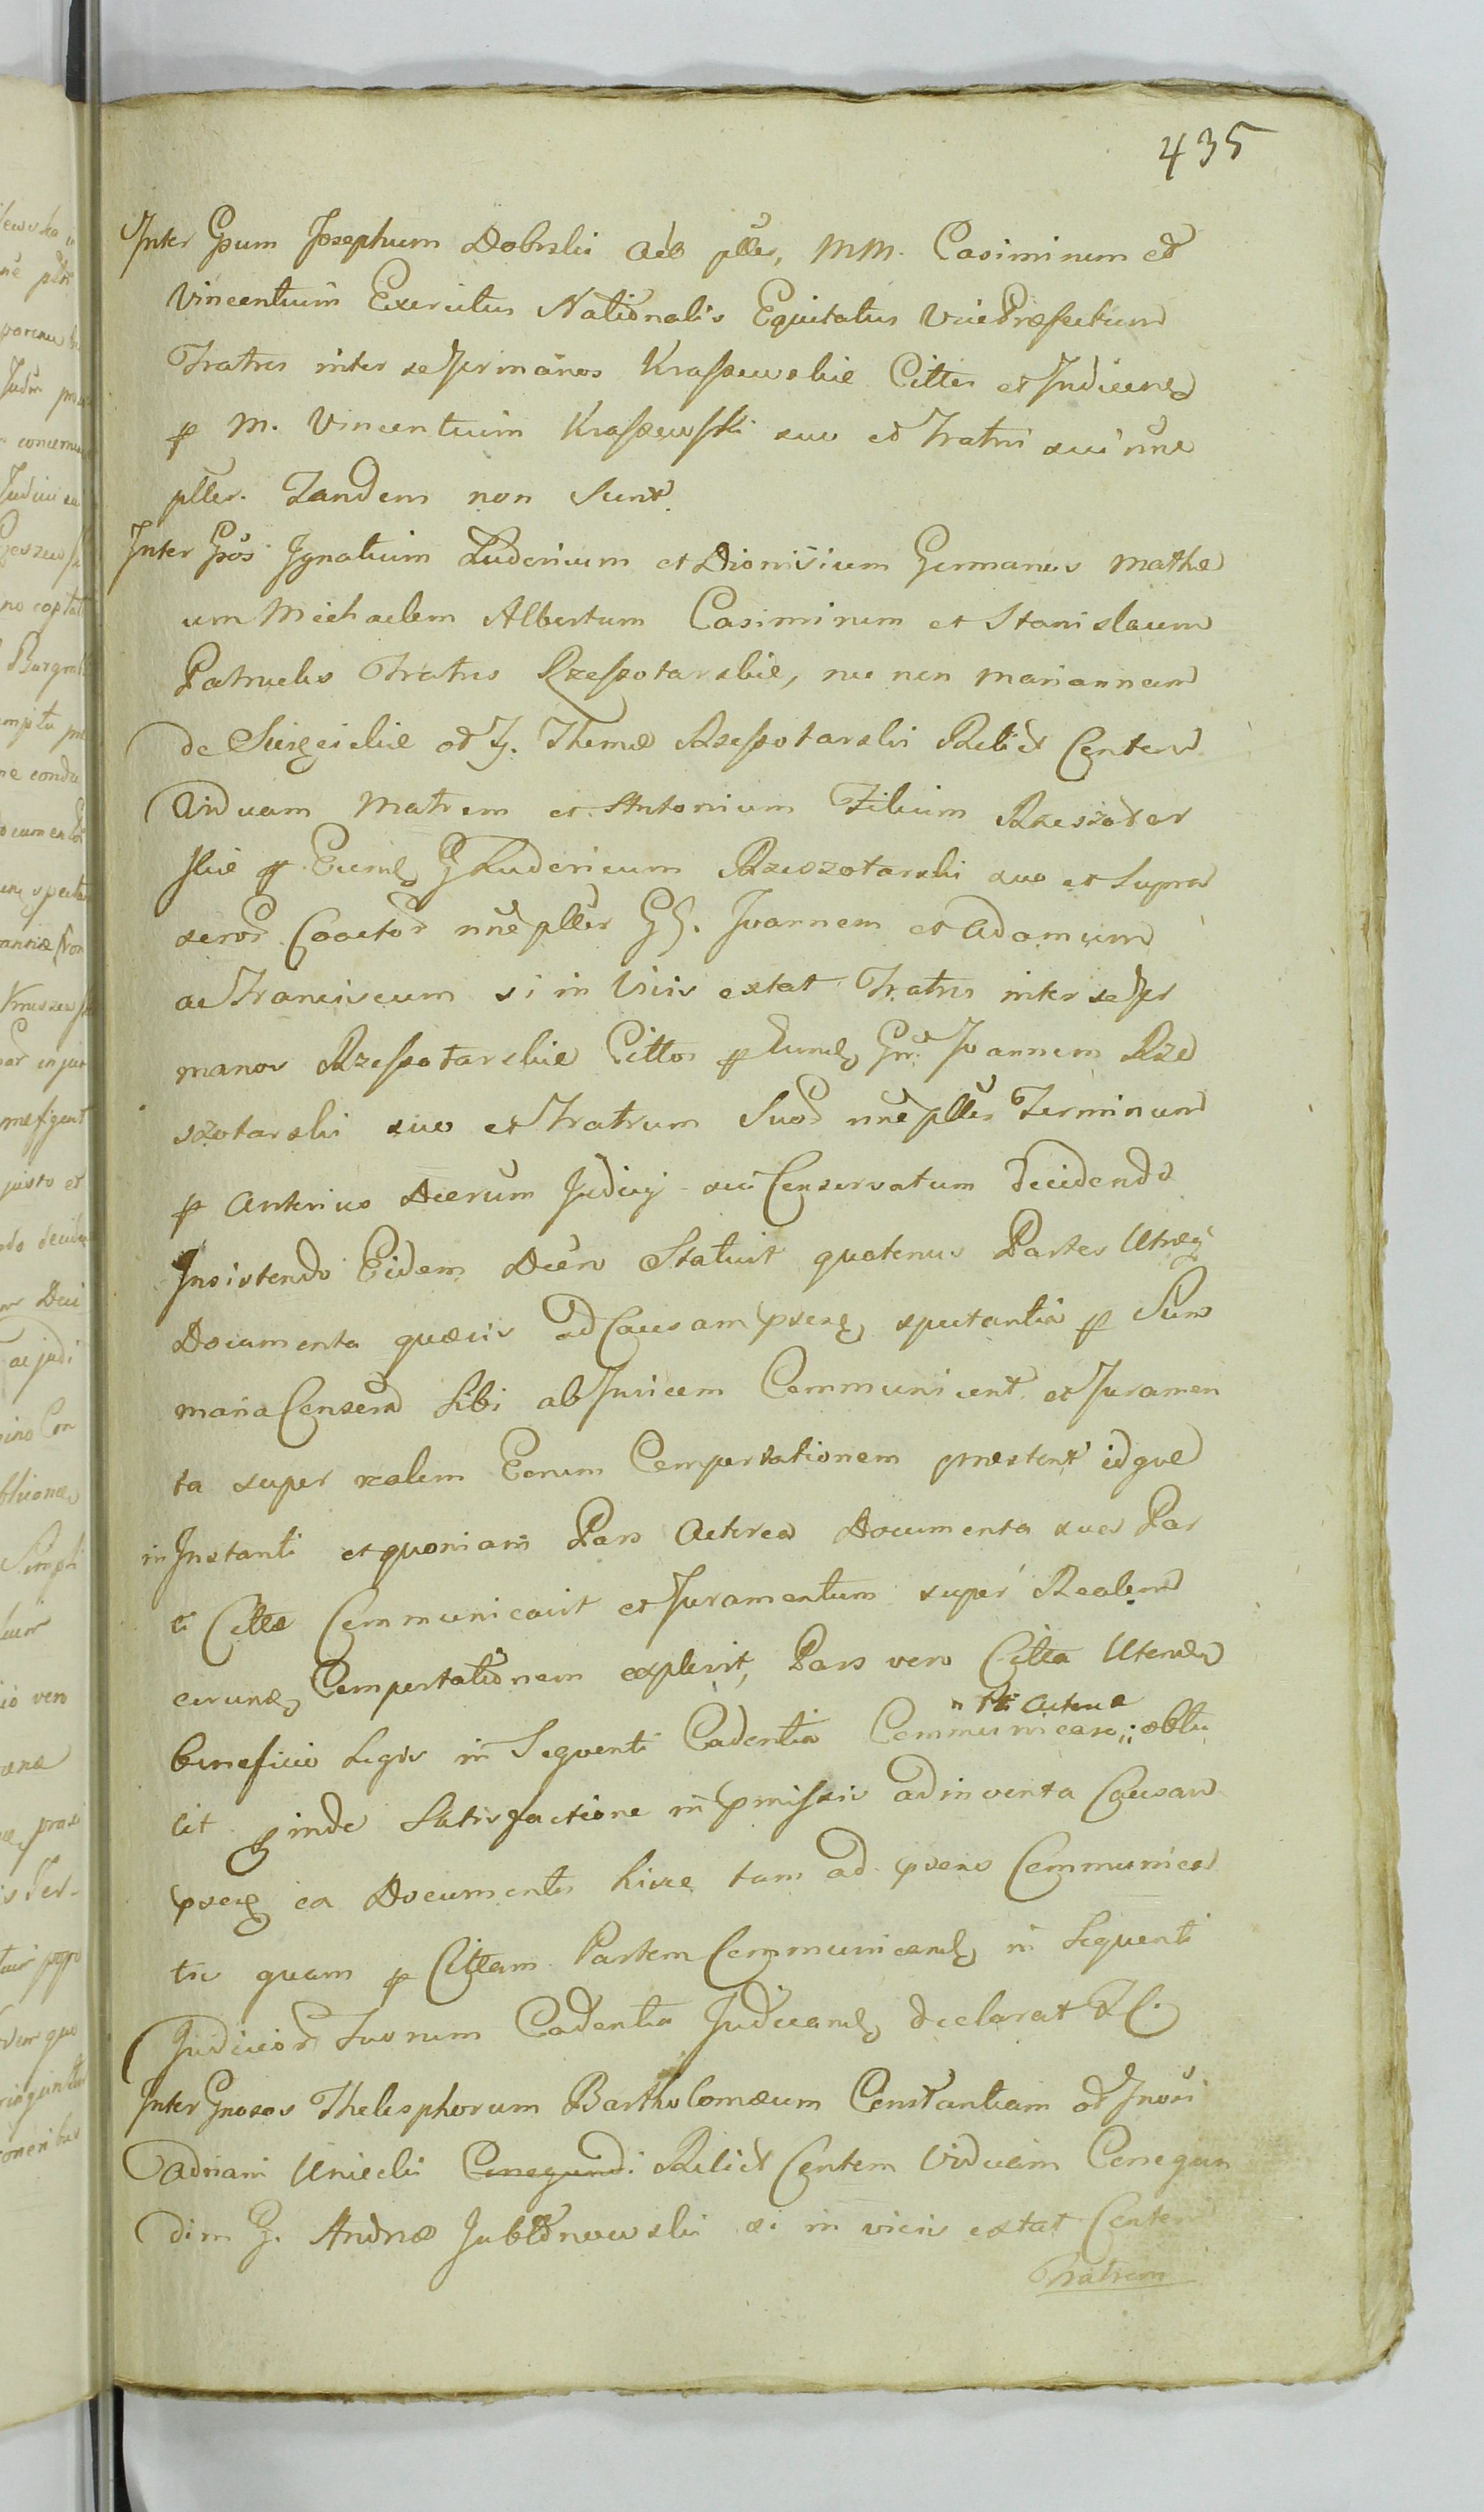 435
Inter Gsum Josephum Dobrski Act pller, MM. Casimirum et
Vincentium Exercitus Nationalis Equitatus ViePræfectum
Fratres inter se Germanos Kraszewskie Cittos et Judicem
p M. Vincentium Kraszewski suo et Fratri sui nne
pller. Tandem non sunt
Inter Gsos Ignatium Ludovicum et Dionisium Germanos Mathe
um Michaelem Albertum Casimirum et Stanislaum
Patrueles Fratres Rzeszotarskie, nec non Mariannam
de olim G. Thomæ Rzeszotarski Relict Consten
Viduam Matrem et Antonium Filium Rzeszotar
skie p Eund G Ludovicum Rzeszotarski suo et supra
seror Coactor nne pller GG. Joannem et Adamum
ac Franciscum si in vivis extat Fratres inter se Ger
manos Rzeszotarskie Cittos p Eund Gr. Joannem Rze
szotarski suo et Fratrum Suor nne pller Terminum
p Anterius Decrum Judicij sui Conservatum decidendo
Insistendo Eidem Decro Statuit quatenus Partes Utræq
Documenta quævis ad Causam psens spectantia p Sum
maria Consens sibi ab Invicem Communicent et Juramen
ta super realem Eorum Comportationem præstent idque
in Instanti et quoniam Pars Actorea Documenta sua Par
ti Cittæ Communicavit et Juramentum super Realem
eorund Comportationem explevit, Pars vero Citta Utendo
" Pti Actoreæ
beneficio Legis in Sequenti Cadentia Communicare ;; obtu
lit p inde Satisfactione in pmissis adinventa Causam
psens ex Documentis hisce tam ad psens Communica
tis quam p Cittam Partem Communicand in Sequenti
Judicior Suorum Cadentia Judicand declarat &c.
Inter Gnosos Thelesphorum Bartholomæum Constantiam olim Gnosi
Adriani Uniecki Cunegundi Relict Consten Viduam Cunegun
dim G. Andreæ Jabłonowski si in vivis extat Consten
Fratrem